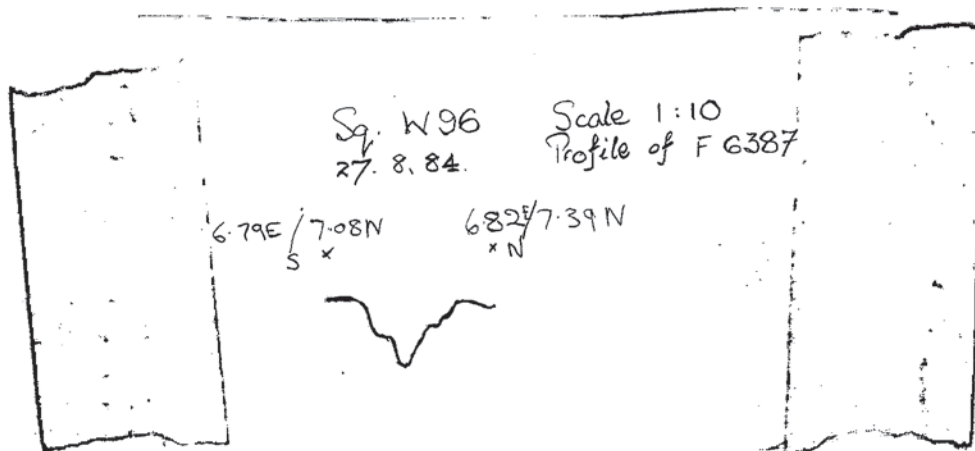 Sq. W96
27. 8. 84.
Scale 1:10
Profile of F 6387
6.79E / 7.08N
S x
6.82E/7.39N
x N